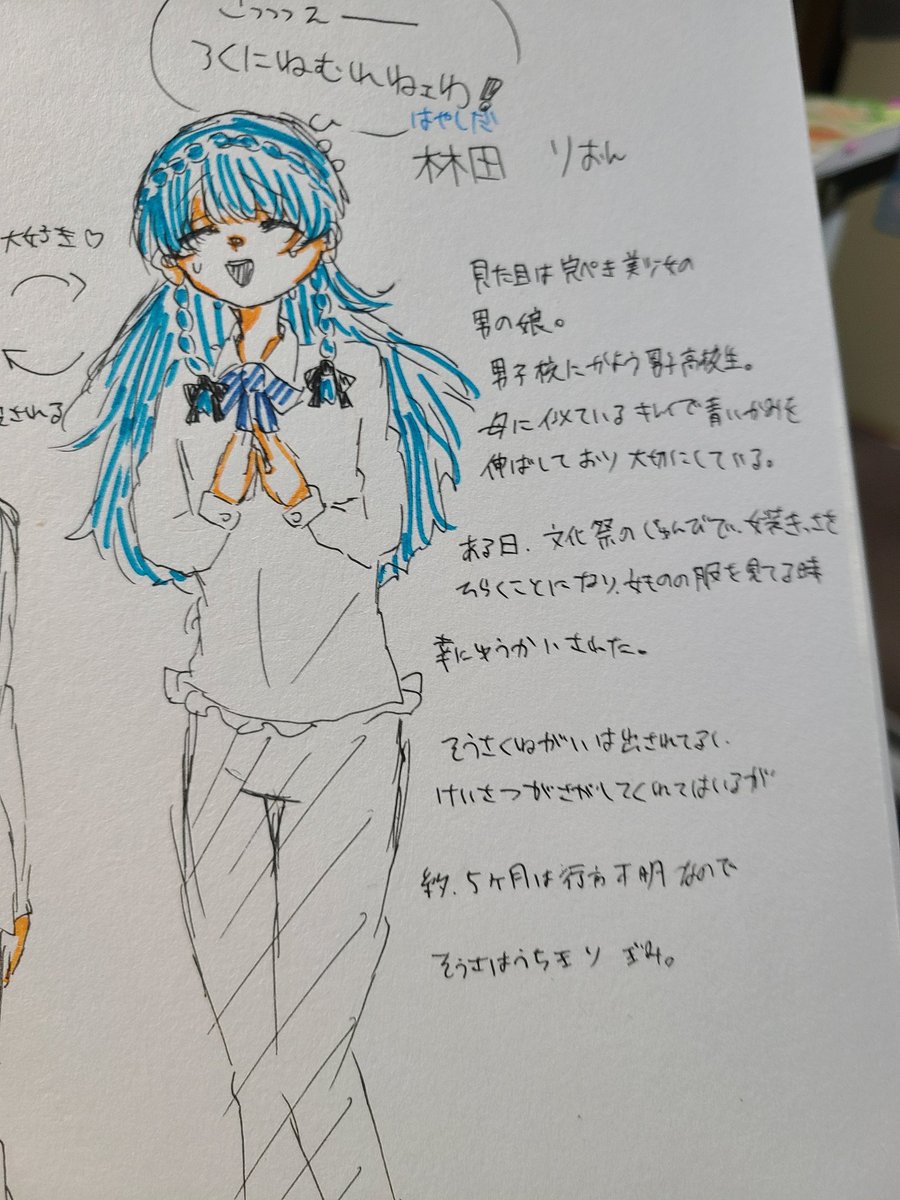 ろくにねむれねェわ!!
はやしだ
林田 りおん
大好き♡
される
見た目は完ぺき美少女の
男の娘。
男子校にかよう男子高校生。
母に似ているキレイで青いかみを
伸ばしており大切にしている。
ある日、文化祭のじゅんびで、女装きっさを
ひらくことになり、女ものの服を見てる時
幸にゆうかいされた。
そうさくねがいは出されてるし、
けいさつがさがしてくれてはいるが
約、5ヶ月は行方不明なので
そうさはうちきりぎみ。